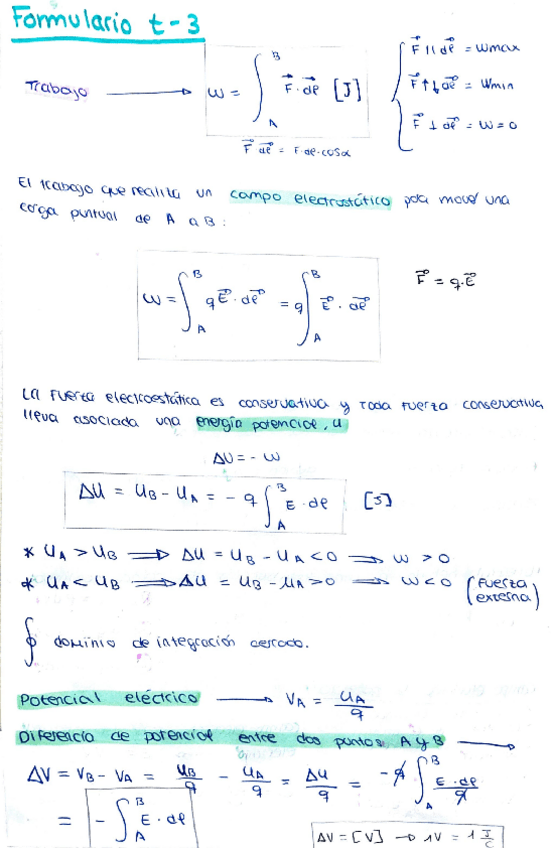 Formulario t-3
Trabajo → W = ∫_A^B F⃗ · dℓ⃗ [J]
F⃗ ∥ dℓ⃗ = Wmax
F⃗ ↑↓ dℓ⃗ = Wmin
F⃗ ⊥ dℓ⃗ = W = 0
F⃗ dℓ⃗ = F·dℓ·cosα
El trabajo que realiza un campo electrostático para mover una
carga puntual de A a B:
W = ∫_A^B qE⃗ · dℓ⃗ = q ∫_A^B E⃗ · dℓ⃗
F⃗ = q·E⃗
La fuerza electroestática es conservativa y toda fuerza conservativa
lleva asociada una energía potencial, U
ΔU = - W
ΔU = U_B - U_A = - q ∫_A^B E · dℓ [J]
* U_A > U_B ⟹ ΔU = U_B - U_A < 0 ⟹ W > 0
* U_A < U_B ⟹ ΔU = U_B - U_A > 0 ⟹ W < 0 (Fuerza externa)
∮ dominio de integración cerrado.
Potencial eléctrico → V_A = U_A/q
Diferencia de potencial entre dos puntos A y B →
ΔV = V_B - V_A = U_B/q - U_A/q = ΔU/q = -q ∫_A^B E · dℓ/q
= - ∫_A^B E · dℓ
ΔV = [V] → 1V = 1 J/C